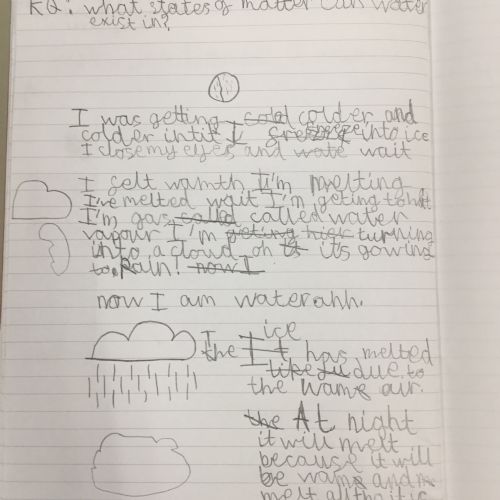 KQ: what states of matter can water
exist in?
I was getting cold colder and
colder intil I freeze into ice
I close my eyes and wate wait
I felt wamth I'm melting
I've melted wait I'm geting to hot
I'm gas called called water
vapour I'm geting hier turning
into a cloud oh is it's gowing
to Rain! now I
now I am water ahh.
I ice
the It has melted
like due to
the wame air.
the At night
it will melt
because it will
be wame and
melt all the